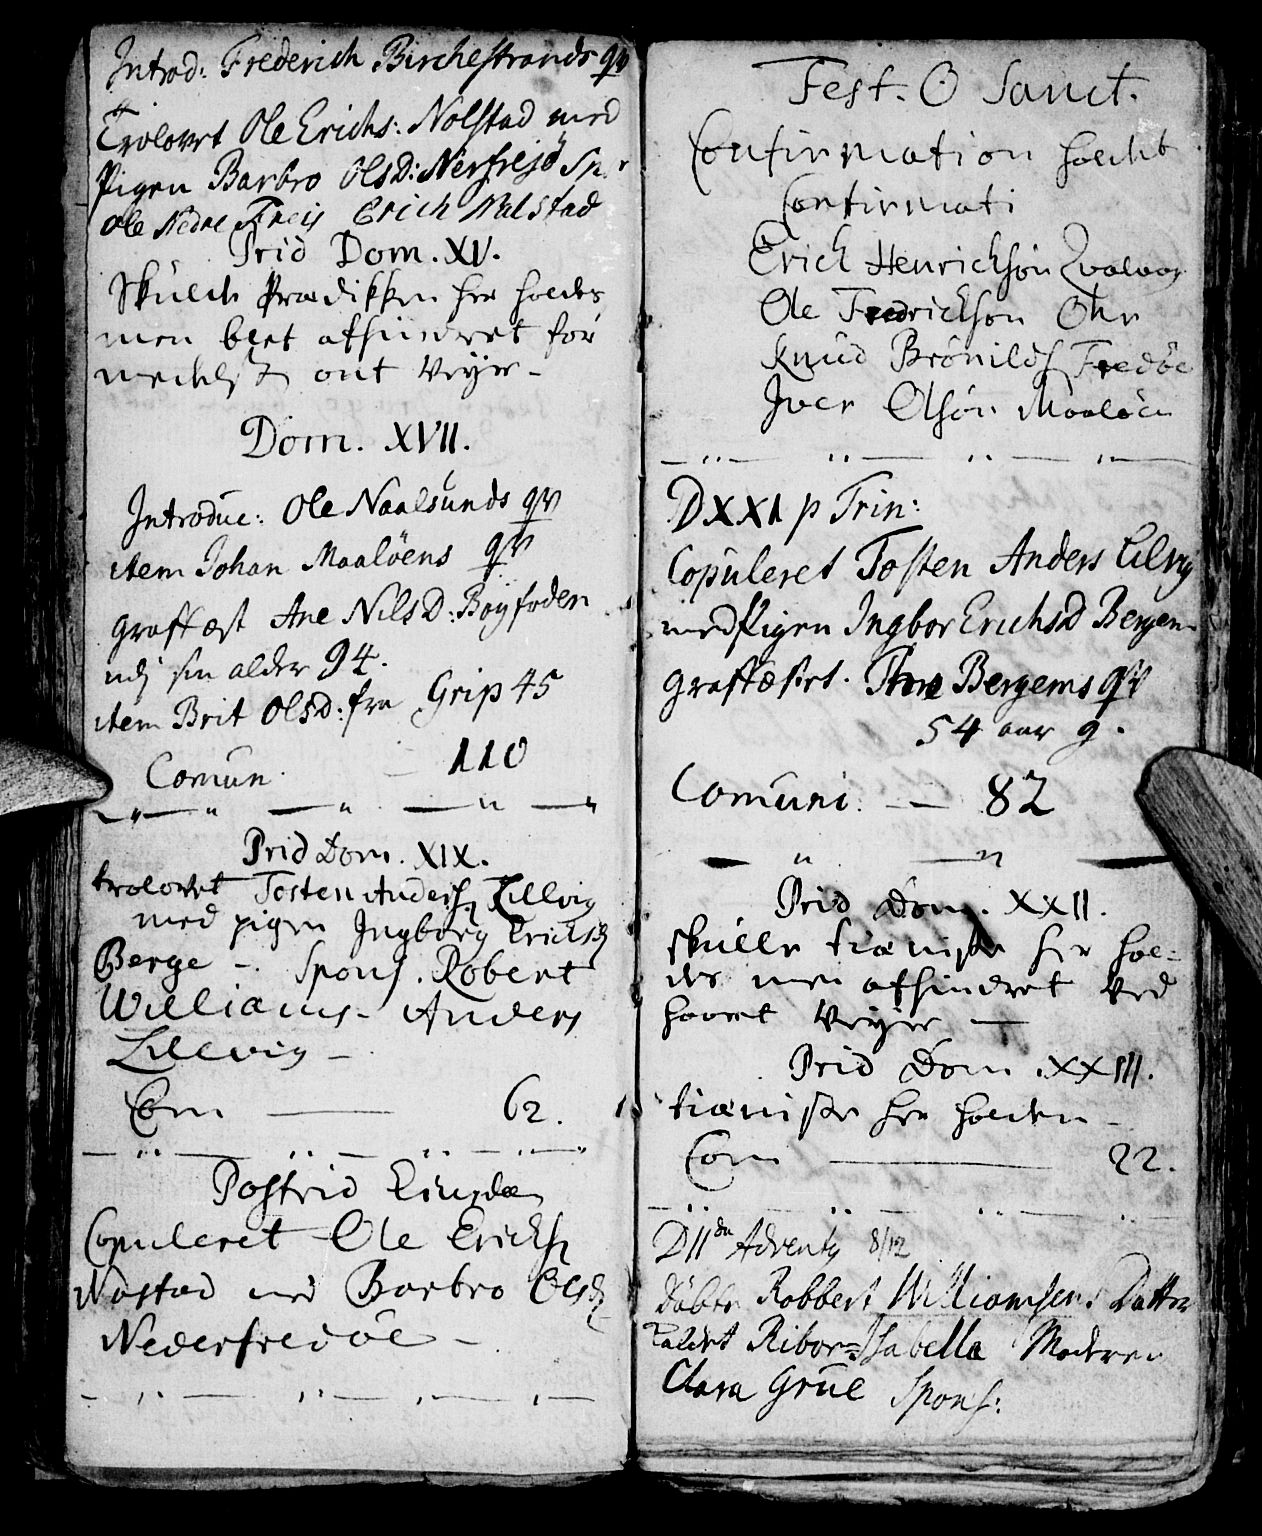 Introd: Frederich Birchestrands qv
Trolovet Ole Erichs: Nolstad med
Pigen Barbro OlsD: Nerfrejö
Ole Nedre Freis Erich Nalstad
Prid Dom. XV.
Skulde Prædikken her holdes
men blet afhindret for
ont Veyer -
Dom. XVII.
Introduc: Ole Naalsunds qv
item Johan Maalöens qv
grafftæst Ane NilsD: Böyfoden
udj sin alder 94.
item Brit OlsD: fra Grip 45
Comun. 110
Prid Dom. XIX.
trolovet Tosten Anders Lillvig
med pigen Ingborg Ericksd
Berge - . Spons. Robert
Williams - Anders
Lillevig -
Com 62.
Postrid Ejusdem
Copuleret Ole Ericks
Nastad med Barbro Olsd
Nederfredöe -
Fest. O Sanct.
Confirmation holdet
Confirmati
Erick Henrichsön
Ole Fredrickson
Knud Brönilds Fredöe
Iver Olsön Maalöen
D XXI p Trin:
Copuleret Tosten Anders Lilvig
med Pigen Ingbor ErichsD Bergem
grafftæstet. Bergems qv
54 aar g.
Comuni. 82
Prid Dom. XXII.
skulle tiæniste her hol-
des men afhindret ved
haaret Veyer
Prid Dom. XXIII.
tiæniste her holden -
Com 22.
D II de Adventy 8/12
döbte Robbert Williamsens Datter
kaldet Ribor Isabella Moderen
Clara Grue Spons: